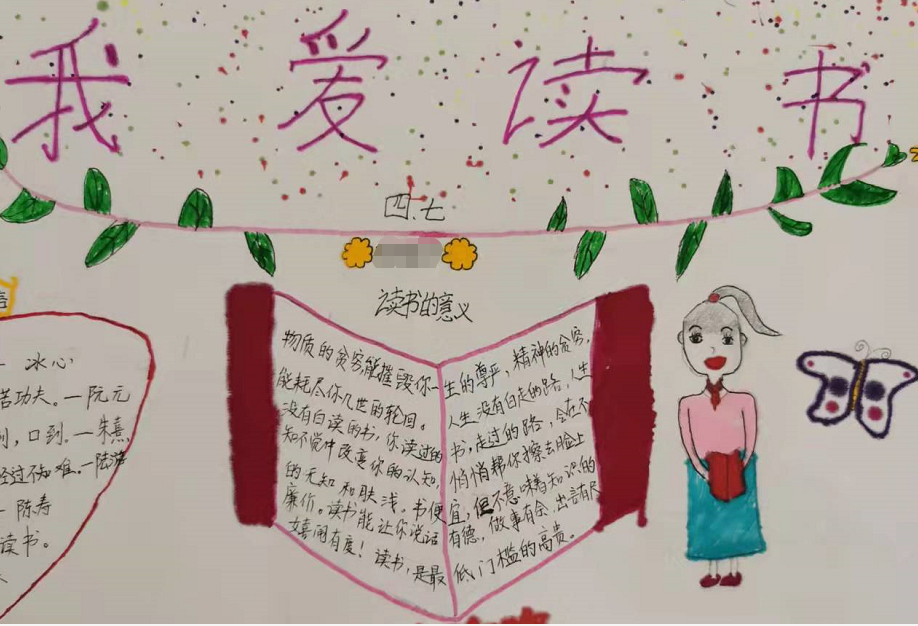 我爱读书
四.七
读书的意义
物质的贫穷,能摧毁你一生的尊严,精神的贫穷,
能耗尽你几世的轮回。人生没有白走的路,人生
没有白读的书,你读过的书,走过的路,会在不
知不觉中改变你的认知,悄悄帮你擦去脸上
的无知和肤浅。书便宜,但不意味着知识的
廉价。读书能让你说话有德,做事有余,出言有尺
嬉闹有度!读书,是最低门槛的高贵。
—冰心
苦功夫。—阮元
到,口到。—朱熹
经过不知难。—陆游
—陈寿
读书。